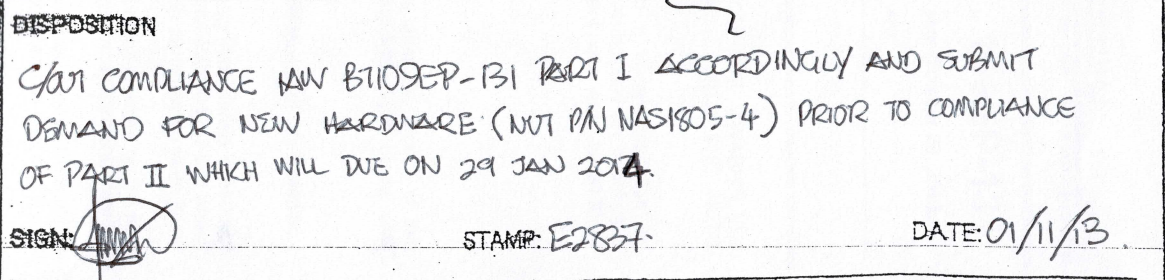 DISPOSITION
C/OUT COMPLIANCE IAW BT109EP-131 PART I ACCORDINGLY AND SUBMIT
DEMAND FOR NEW HARDWARE (NUT P/N NAS1805-4) PRIOR TO COMPLIANCE
OF PART II WHICH WILL DUE ON 29 JAN 2014.
SIGN: STAMP: E2837. DATE: 01/11/13.